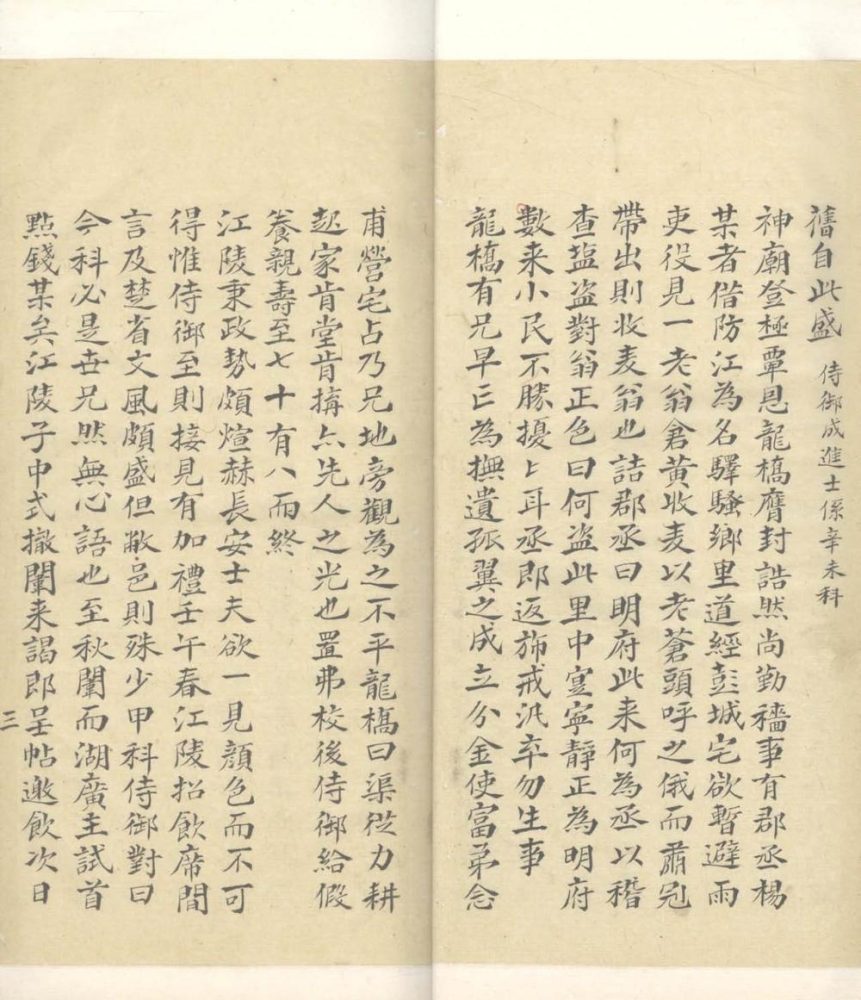 舊自此盛 侍御成進士係辛未科
神廟登極覃恩龍橋膺封誥然尚勤穡事有郡丞楊
某者借防江為名驛騷鄉里道經彭城宅欲暫避雨
吏役見一老翁倉黃收麦以老蒼頭呼之俄而肅冠
帶出則收麦翁也詰郡丞曰明府此来何為丞以稽
查盐盗對翁正色曰何盗此里中寔寧靜正為明府
數来小民不勝擾〻耳丞即返斾戒汛卒勿生事
龍橋有兄早亡為撫遺孤翼之成立分金使富弟念
甫營宅占乃兄地旁觀為之不平龍橋曰渠從力耕
起家肯堂肯搆亦先人之光也置弗校後侍御給假
養親壽至七十有八而終
江陵秉政勢頗煊赫長安士夫欲一見顏色而不可
得惟侍御至則接見有加禮壬午春江陵招飲席間
言及楚省文風頗盛但敝邑則殊少甲科侍御對曰
今科必是世兄然無心語也至秋闈而湖廣主試首
點錢某矣江陵子中式撤闈来謁郎呈帖邀飲次日
三